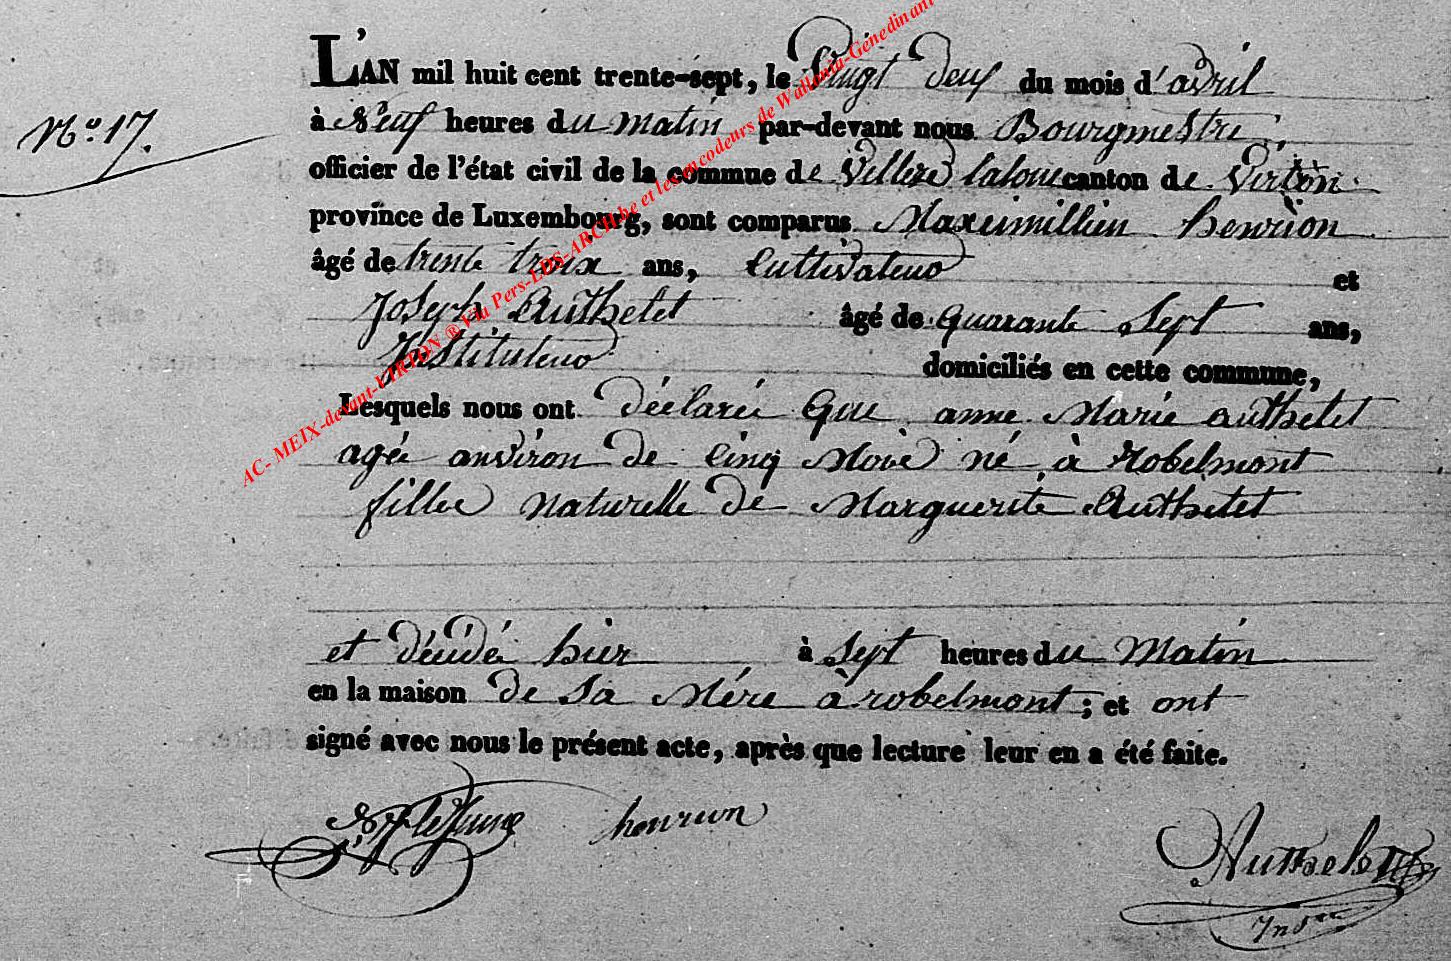 L'AN mil huit cent trente-sept, le Vingt deuf du mois d'avril
N.o 17.
à Neuf heures du matin par-devant nous Bourgmestre
officier de l'état civil de la commune de Villere laloue canton de Virton
province de Luxembourg, sont comparus Maximillien henrion
âgé de trente troix ans, Cultivateur et
Joseph Authelet âgé de quarante Sept ans,
Instituteur domiciliés en cette commune,
Lesquels nous ont déclaré que anne Marie authelet
agée anviron de Cinq Moie né à Robelmont
fillee naturelle de Marguerite Authelet
et décédée hier à Sept heures du Matin
en la maison de Sa Mére à robelmont ; et ont
signé avec nous le présent acte, après que lecture leur en a été faite.
henrion
Authelet
AC- MEIX-devant-VIRTON ® Via Pers-LDS-ARCH.be et les encodeurs de Wallonia-Genedinant